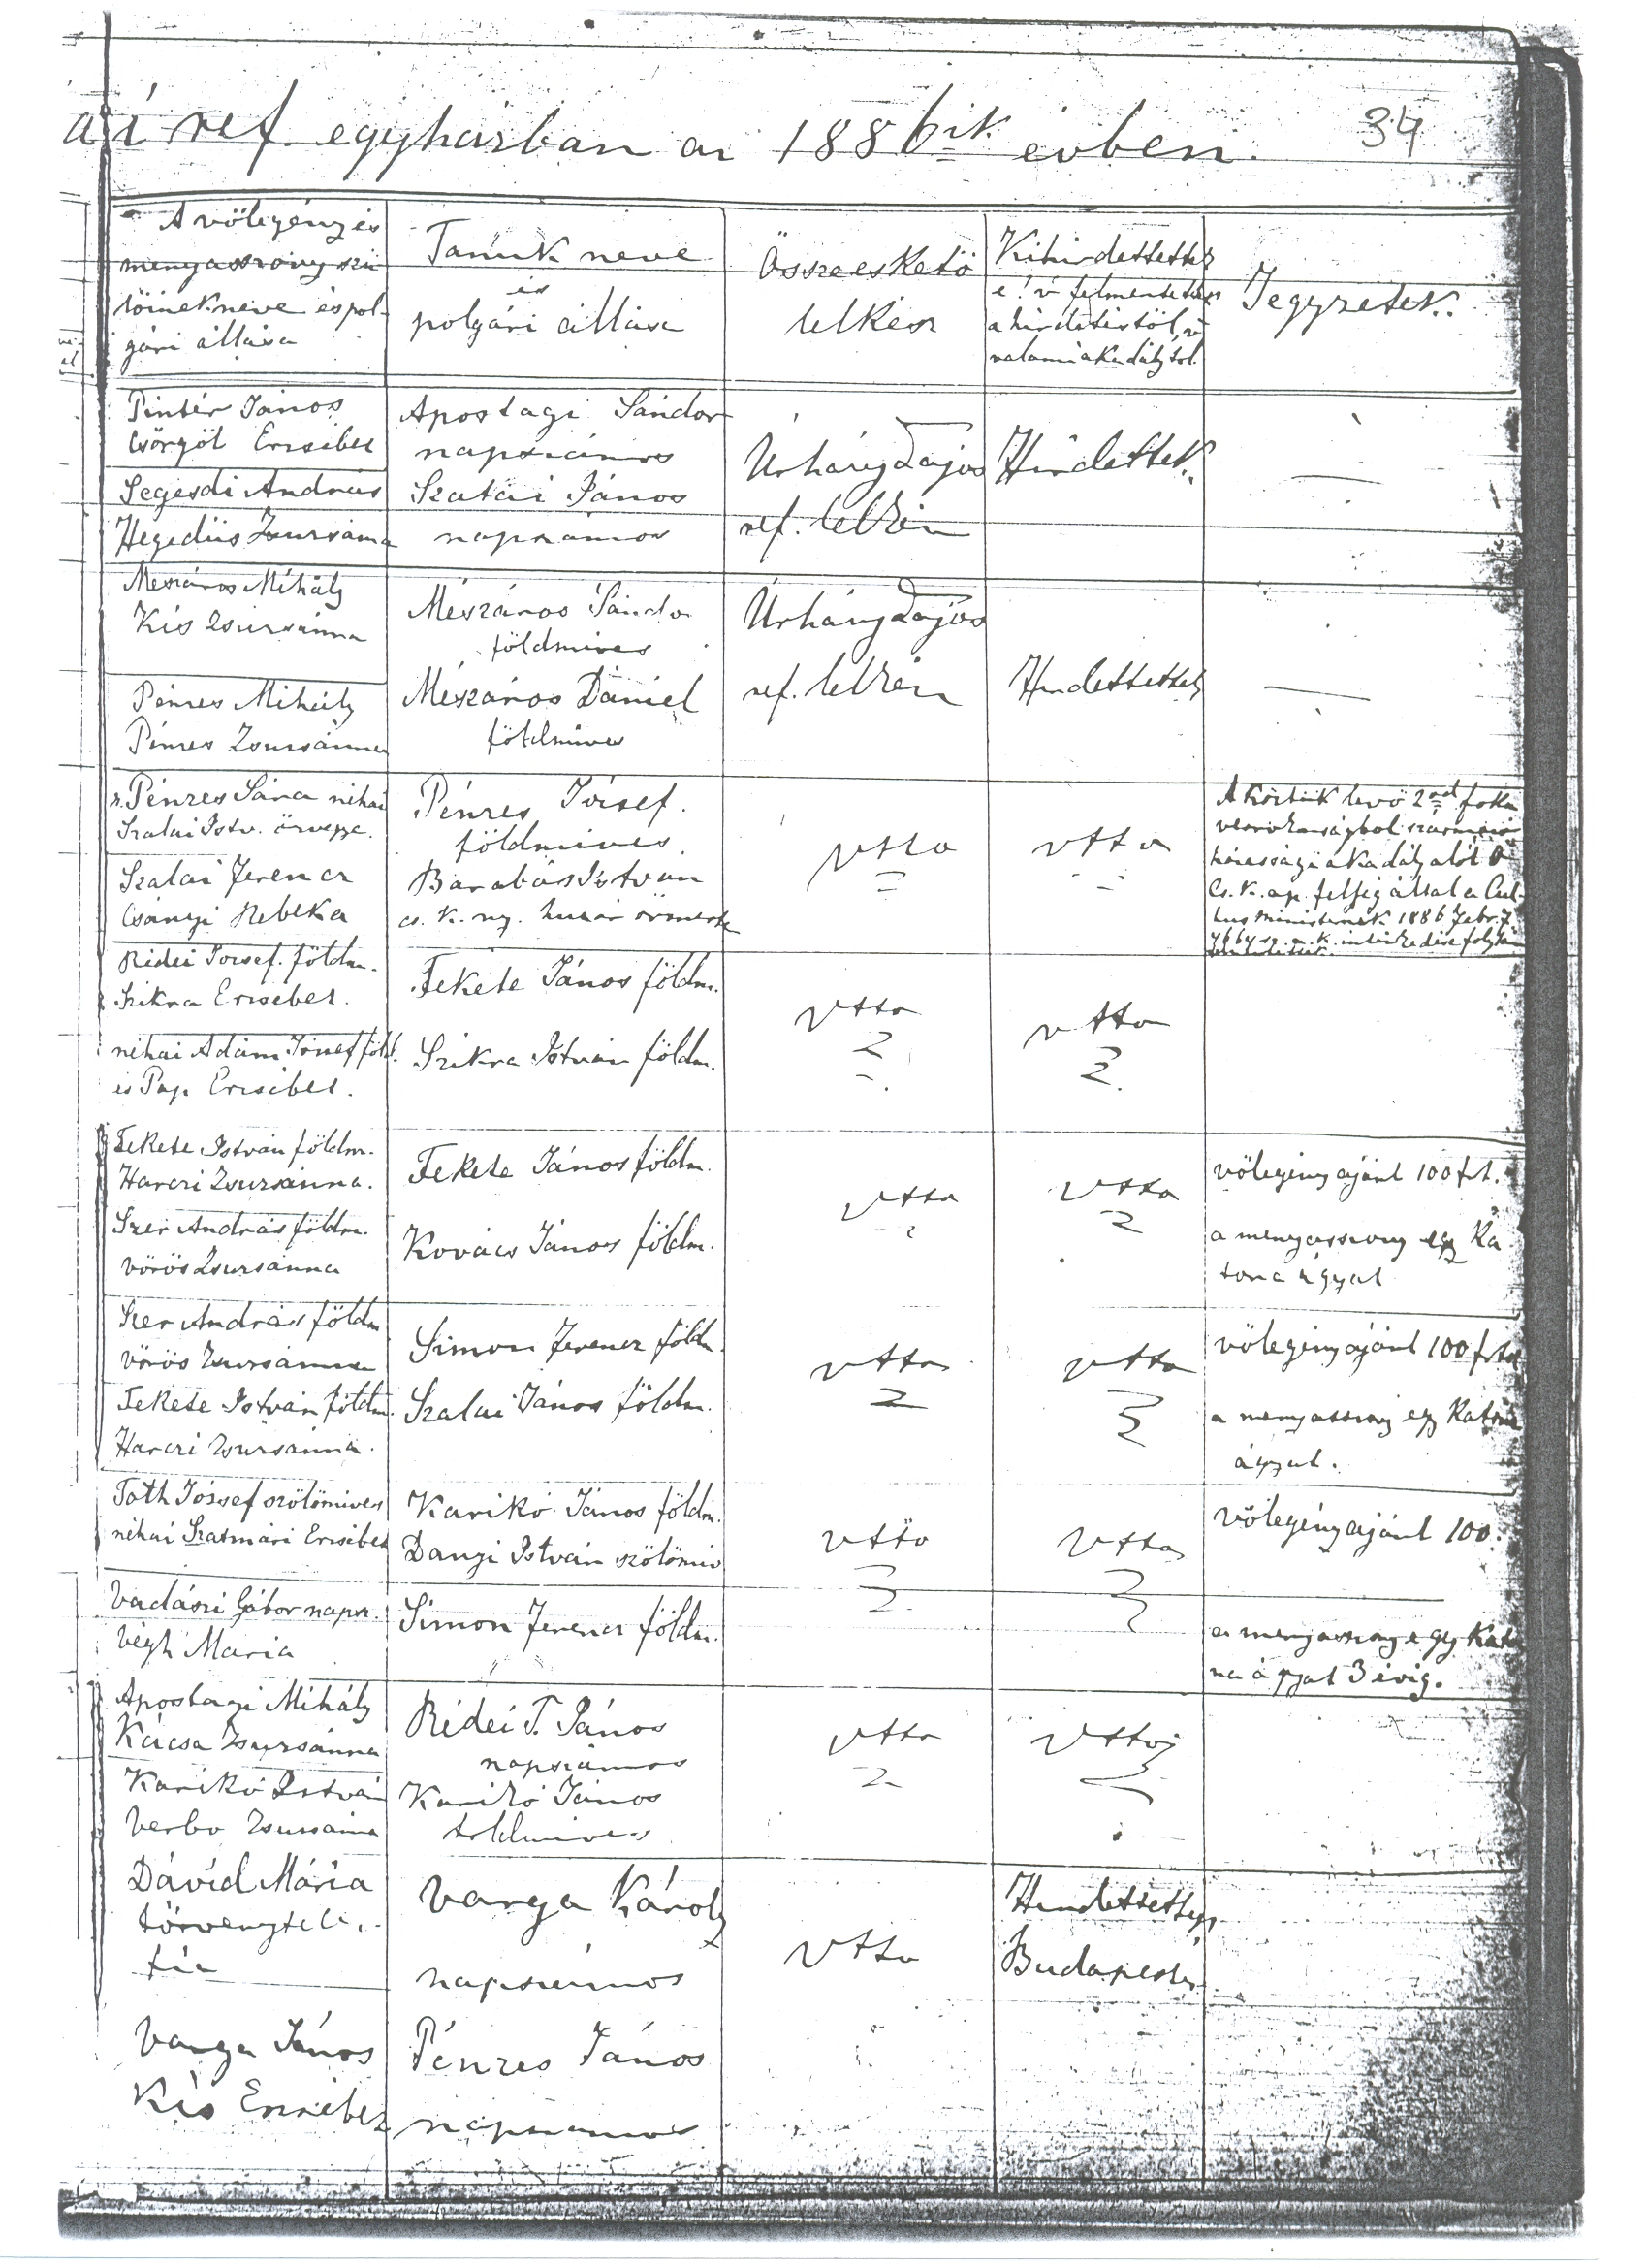 a i ref. egyházban az 1886bik évben.
34
A vőlegény és
menyasszony szü
lőinek neve és pol-
gári állása
Tanuk neve
és
polgári állása
Összeeskető
lelkész
Kihirdettettek
e? v. felmentettek
a hirdetéstől, v.
valami akadálytól
Jegyzetek.
Pintér János
Csörgöl Erzsébet
Segesdi András
Hegedüs Zsuzsánna
Apostagi Sándor
napszámos
Szalai János
napszámos
Úrházy Lajos
ref. lelkész
Hirdettek.
—
Mészáros Mihály
Kis Zsuzsánna
Pénzes Mihály
Pénzes Zsuzsánna
Mészáros Sándor
földmives
Mészáros Dániel
földmives
Úrházy Lajos
ref. lelkész
Hirdettettek
—
Pénzes Sára néhai
Szalai Istv. özvegye.
Szalai Ferencz
Csányi Rebeka
Pénzes József.
földmives.
Barabás István
cs. k. ny. huszár őrmester
vtto
vtto
A köztük levő 2od foku
vérrokonságból származó
házassági akadály alól Ő
Cs. K. ap. felség által a Cul-
tus Ministernek 1886 Febr. 7
Rédei József. földm.
Szikra Erzsébet.
néhai Ádám József föld.
és Pap Erzsébet.
Fekete János földm.
Szikra István földm.
vtto
vtto
Fekete István földm.
Harczi Zsuzsánna.
Szer András földm.
Vörös Zsuzsánna
Fekete János földm.
Kovács János földm.
vtto
vtto
vőlegény ajánl 100 frt.
a menyasszony egy Ka
tona ágyat
Szer András földm
Vörös Zsuzsánna
Fekete István földm.
Harczi Zsuzsánna.
Simon Ferencz földm
Szalai János földm.
vtto
vtto
vőlegény ajánl 100 frtot
a menyasszony egy Katona
ágyat.
Tóth József szőlőmives
néhai Szatmári Erzsébet
Vadászi Gábor napsz.
Végh Mária
Karikó János földm.
Dangi István szőlőmiv
Simon Ferencz földm.
vtto
vtto
vőlegény ajánl 100.
a menyasszony egy Kato
na ágyat 3 évig.
Apostagi Mihály
Kácsa Zsuzsánna
Karikó István
Verbo Zsuzsánna
Rédei T. János
napszámos
Karikó János
földmives
vtto
vtto
Dávid Mária
törvénytele.
fia
Varga János
Kis Erzsébet
Varga Károly
napszámos
Pénzes János
napszámos
vtto
Hirdettettek
Budapesten